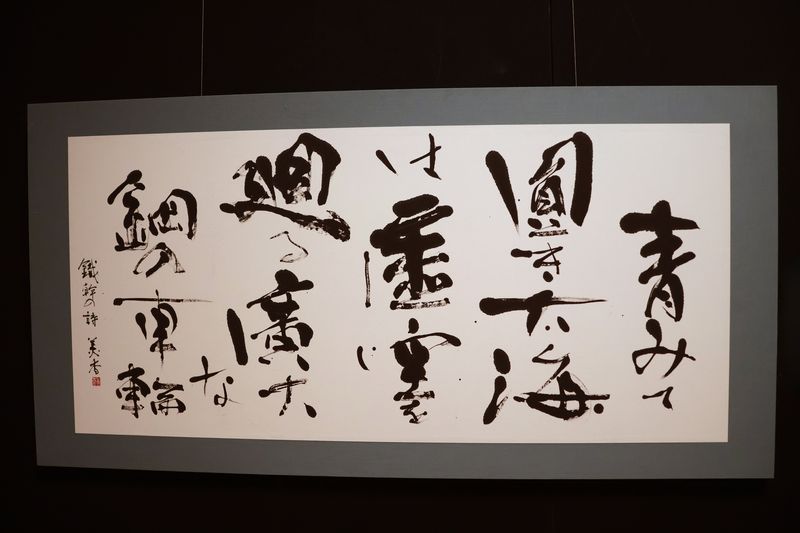 青みて
圓き大海
は虚空を
廻る廣大な
鋼の車輪
鐵幹の詩